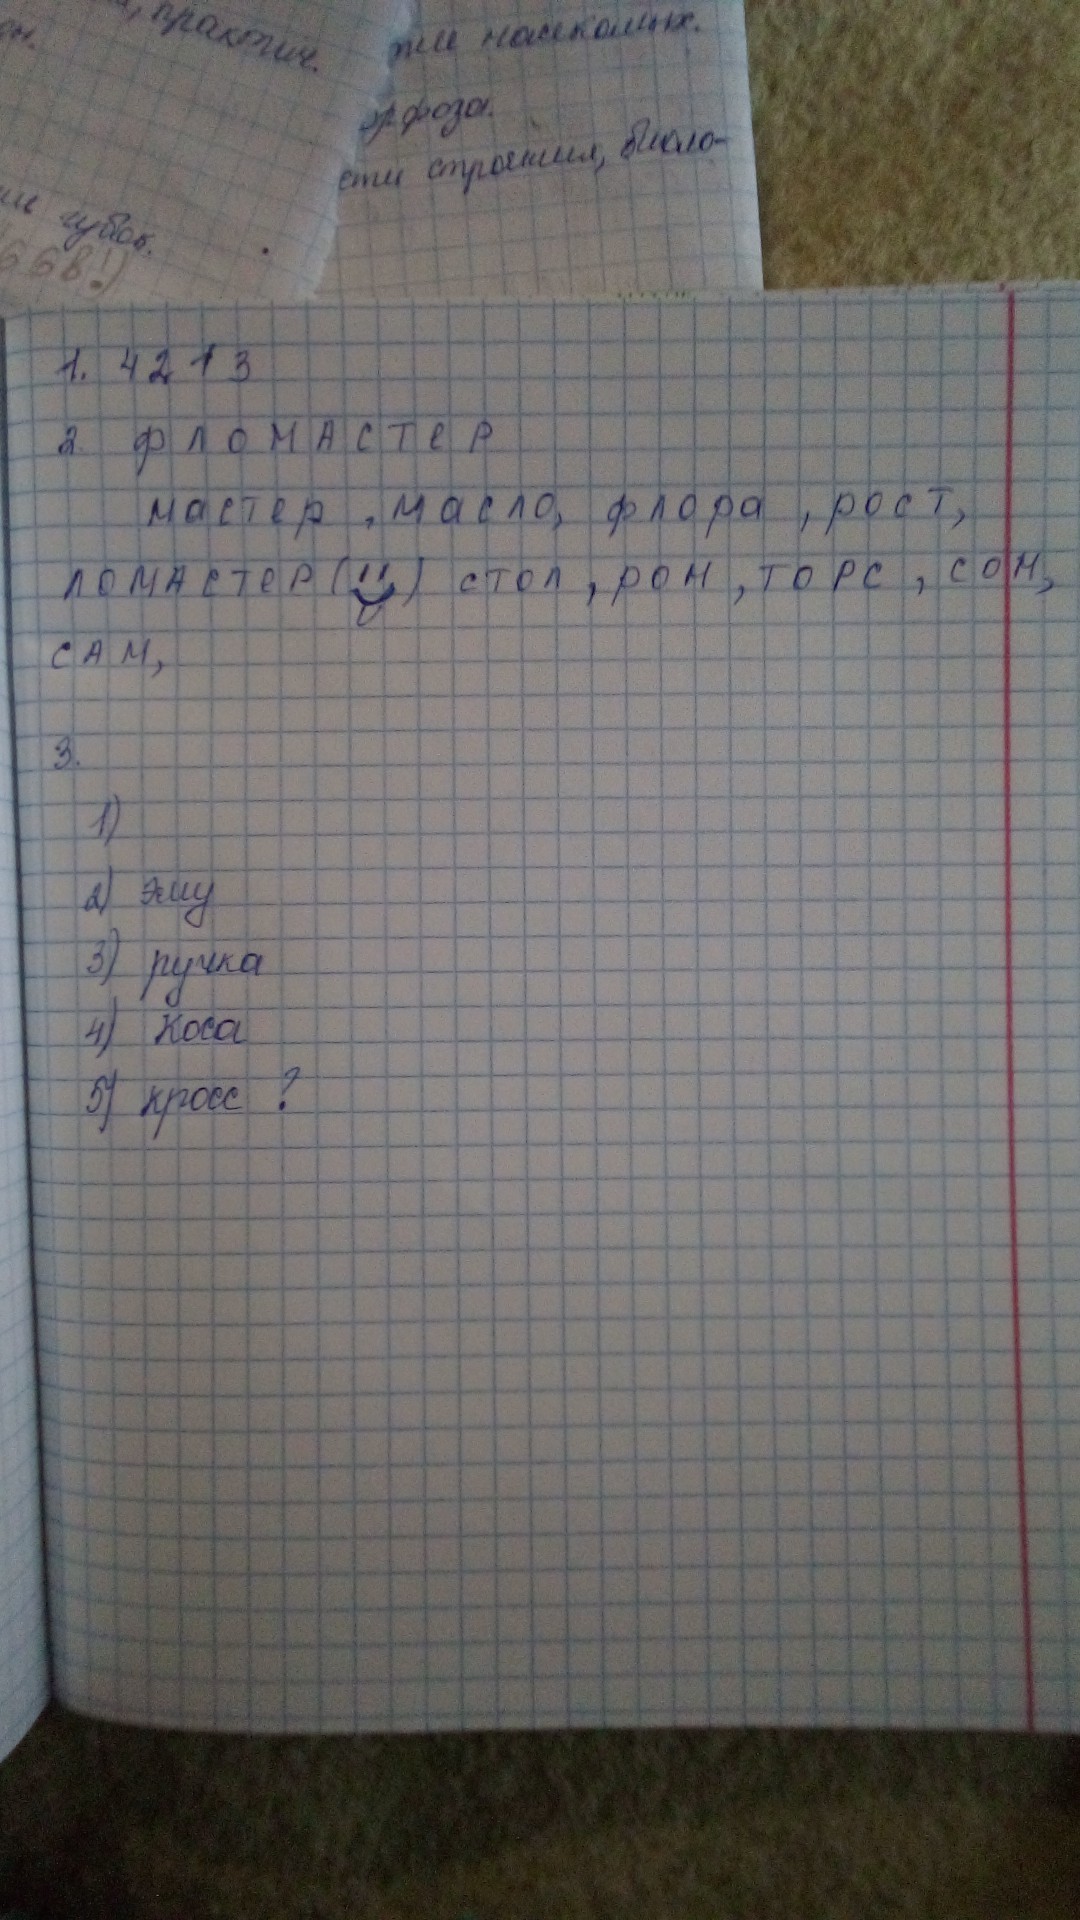 практич.
насекомых.
строения, биоло-
губок.
1. 4213
2. ФЛОМАСТЕР
мастер, масло, флора, рост,
ЛОМАСТЕР( ) СТОЛ, РОМ, ТОРС, СОМ,
САМ,
3.
1)
2) эму
3) ручка
4) коса
5) кросс ?